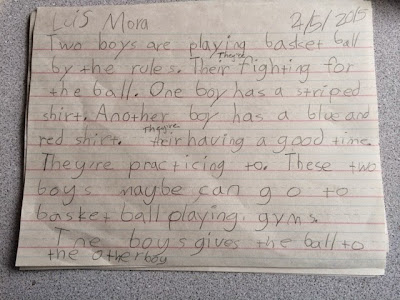 Luis Mora 2/5/2015
Two boys are playing basket ball
They're
by the rules. Their fighting for
the ball. One boy has a striped
shirt. Another boy has a blue and
they're
red shirt. their having a good time.
They're practicing to. These two
boys maybe can go to
basket ball playing gyms.
The boys gives the ball to
the other boy